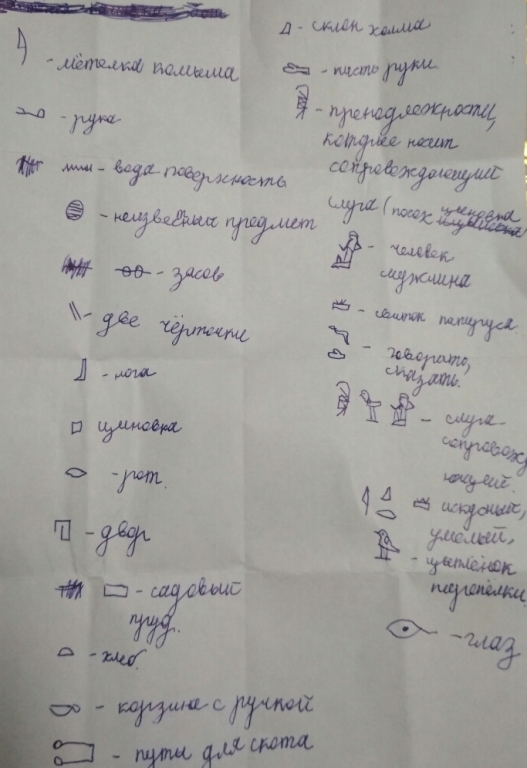 - метелка камыша
- рука
- вода поверхность
- неизвесных предмет
- засов
- две чёрточки
- нога
циновка
- рот.
- двор
- садовый
пруд.
- хлеб.
- корзина с ручкой
- путы для скота
- склон холма
- кисть руки
- принадлежности,
которые носит
сопровождающий
слуга (посох циновка
- человек
мужчина
- свиток папируса
- говорить,
сказать.
- слуга-
сопровожд
ающий.
искусный,
умелый,
- цыплёнок
перепёлки
- глаз